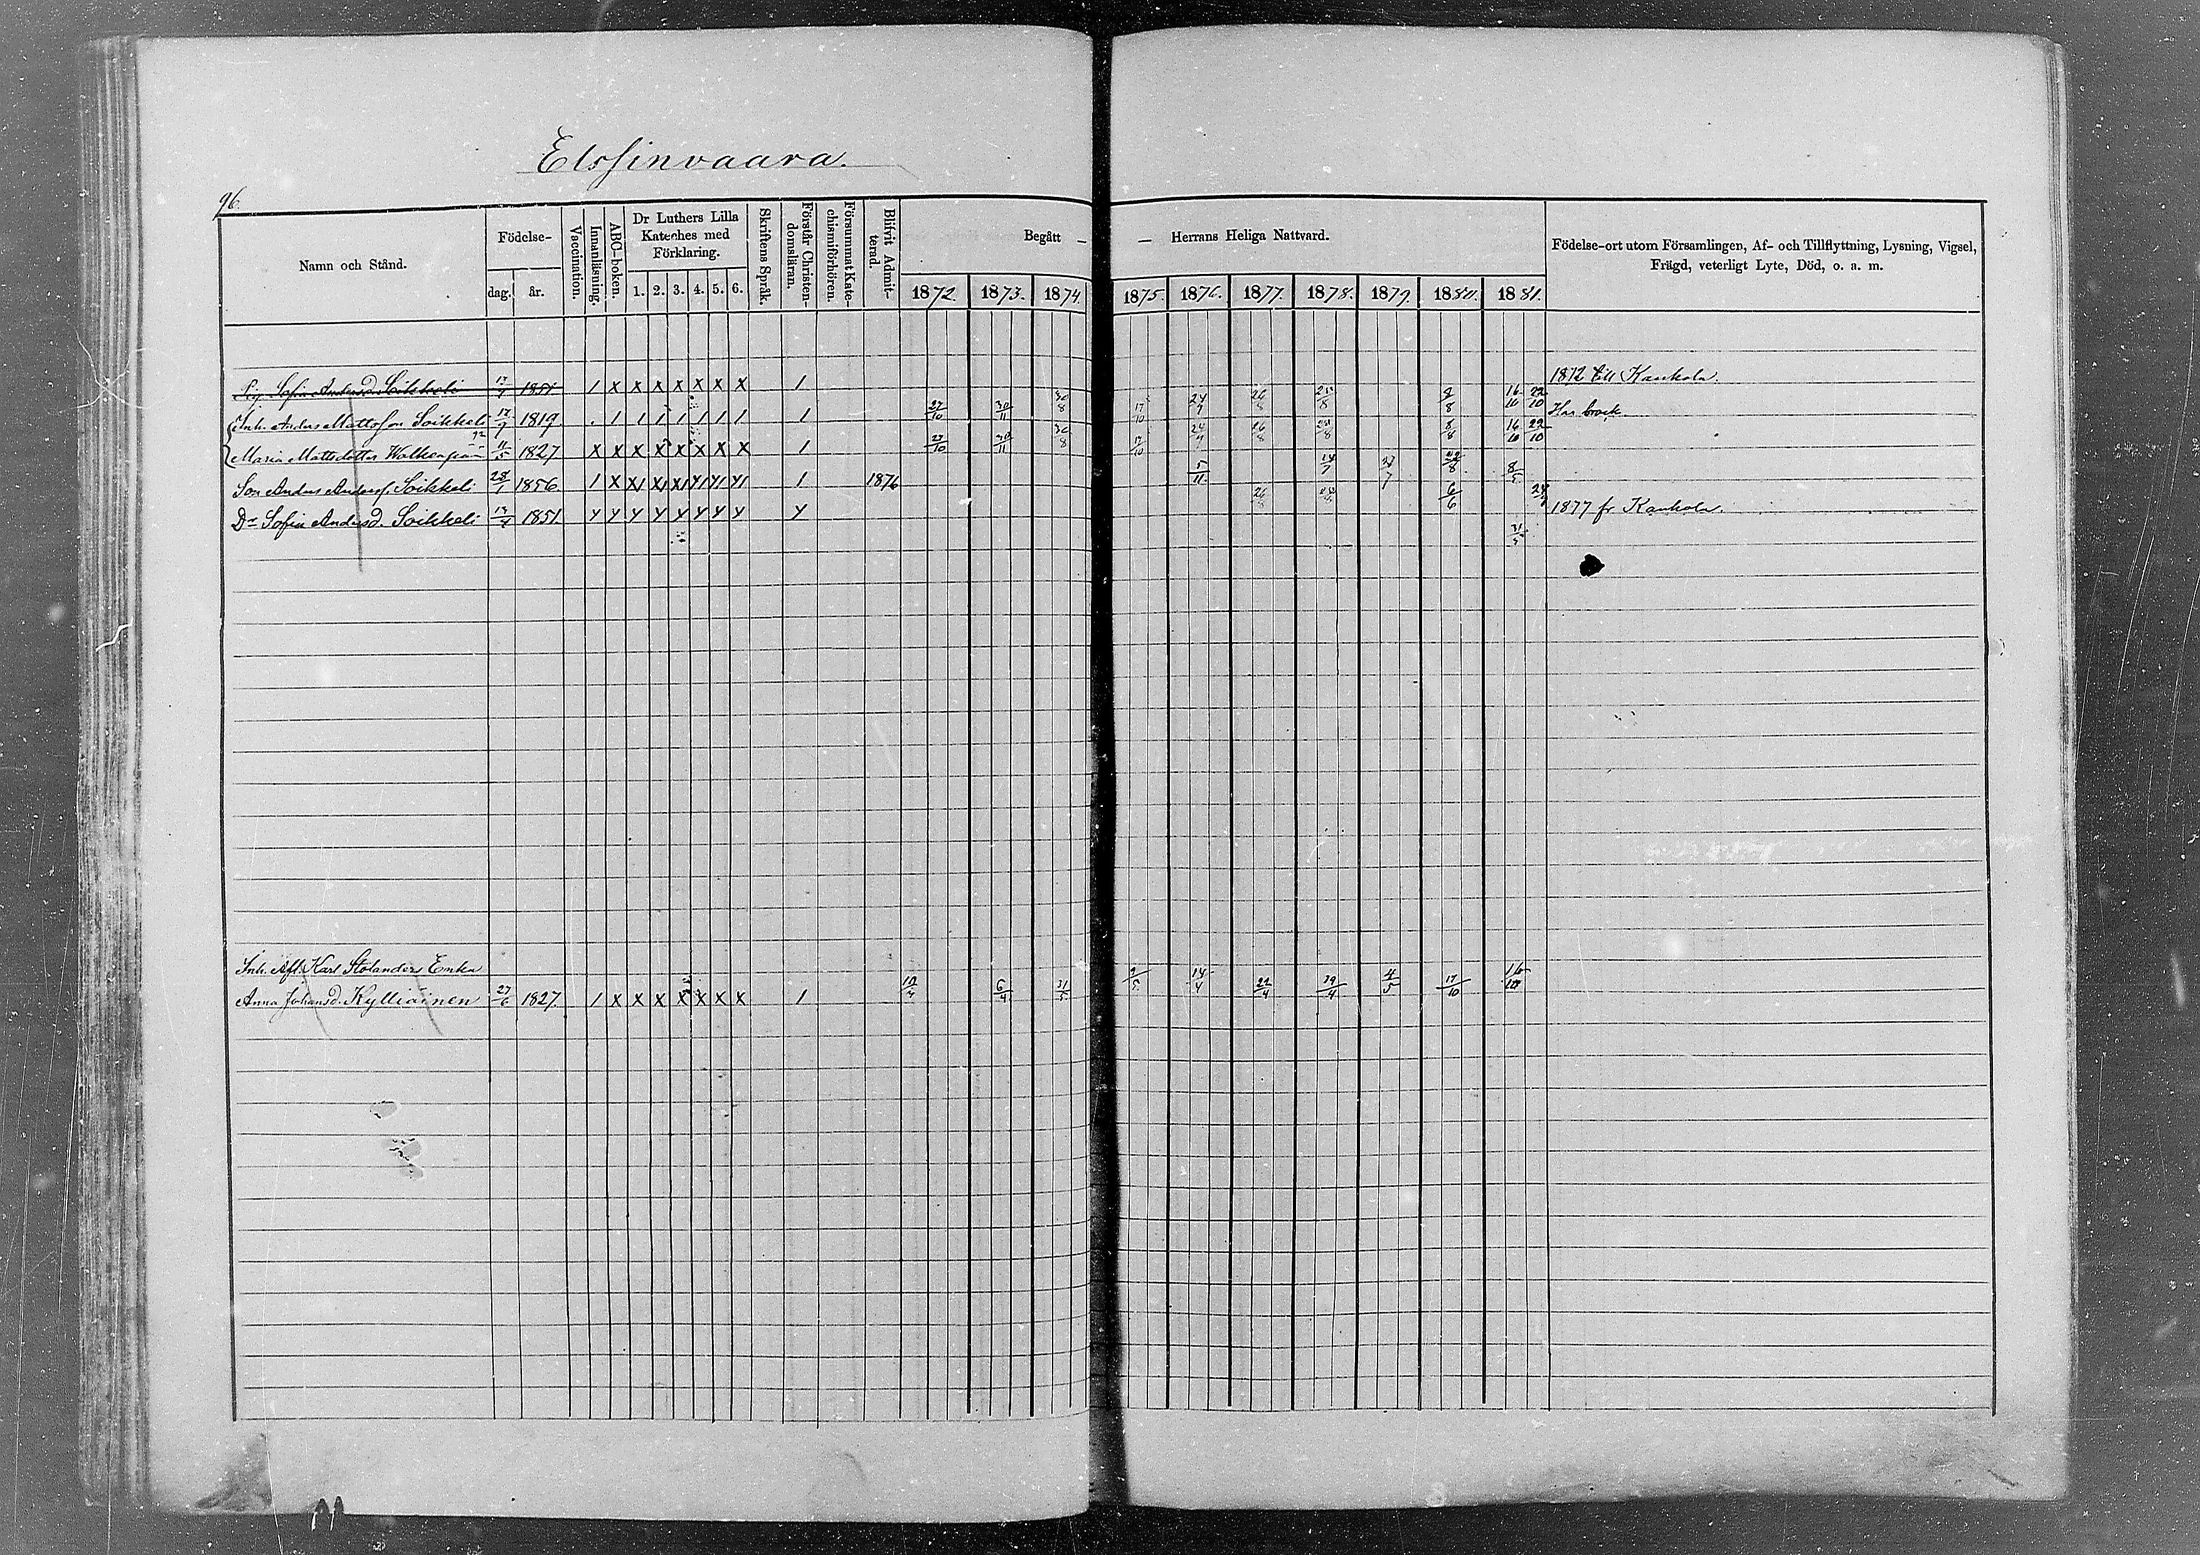 Elssinvaara.
96.
Namn och Stånd.
Födelse-
dag. år.
Vaccination.
Innanläsning.
ABC-boken.
Dr Luthers Lilla
Kateches med
Förklaring.
1. 2. 3. 4. 5. 6.
Skriftens Språk.
Förstår Christen-
domsläran.
Försummat Kate-
chismiförhören.
Blifvit Admit-
terad.
Begått — — Herrans Heliga Nattvard.
1872. 1873. 1874. 1875. 1876. 1877. 1878. 1879. 1880. 1881.
Födelse-ort utom Församlingen, Af- och Tillflyttning, Lysning, Vigsel,
Frägd, veterligt Lyte, Död, o. a. m.
Pig. Sofia Andersd. Soikkeli 1851 1 x x x x x x x 1 1872 till Kaukola.
Inh. Anders Mattsson Soikkeli 1819 . 1 1 1 1 1 1 1 1 27/10 30/11 30/8 17/10 24/9 26/8 25/8 8/8 16/10 22/10 Har brock.
Maria Mattsdotter 11/5 1827 x x x x x x x x 1 27/10 30/11 30/8 17/10 24/9 26/8 25/8 8/8 16/10 22/10
Son Anders Anderss. Soikkeli 1856 1 x x1 x1 x1 x1 x1 x1 1 1876 5/11 8/5
Dr Sofia Andersd. Soikkeli 1851 y y y y y y y y y 6/6 1877 fr Kaukola.
31/5
Inh. Afl. Karl Stolanders Enka
Anna Johansd. Kylliäinen 27/6 1827. 1 x x x x x x x 1 6/4 31/5 14/4 22/4 4/5 17/10 16/10